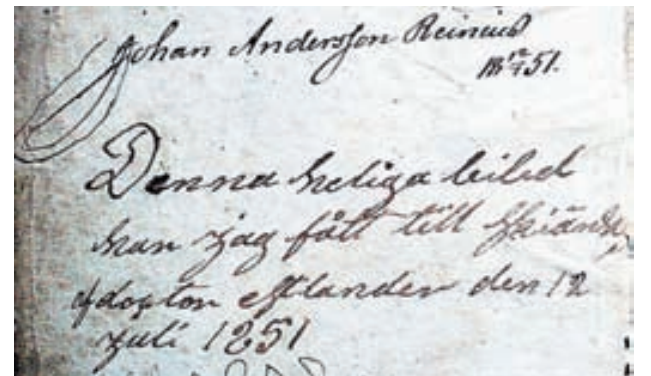 Johan Andersson Reinius
18 12/7 51.
Denna heliga bibel
har jag fått till skiänk
af doktor Estlander den 12
Juli 1851